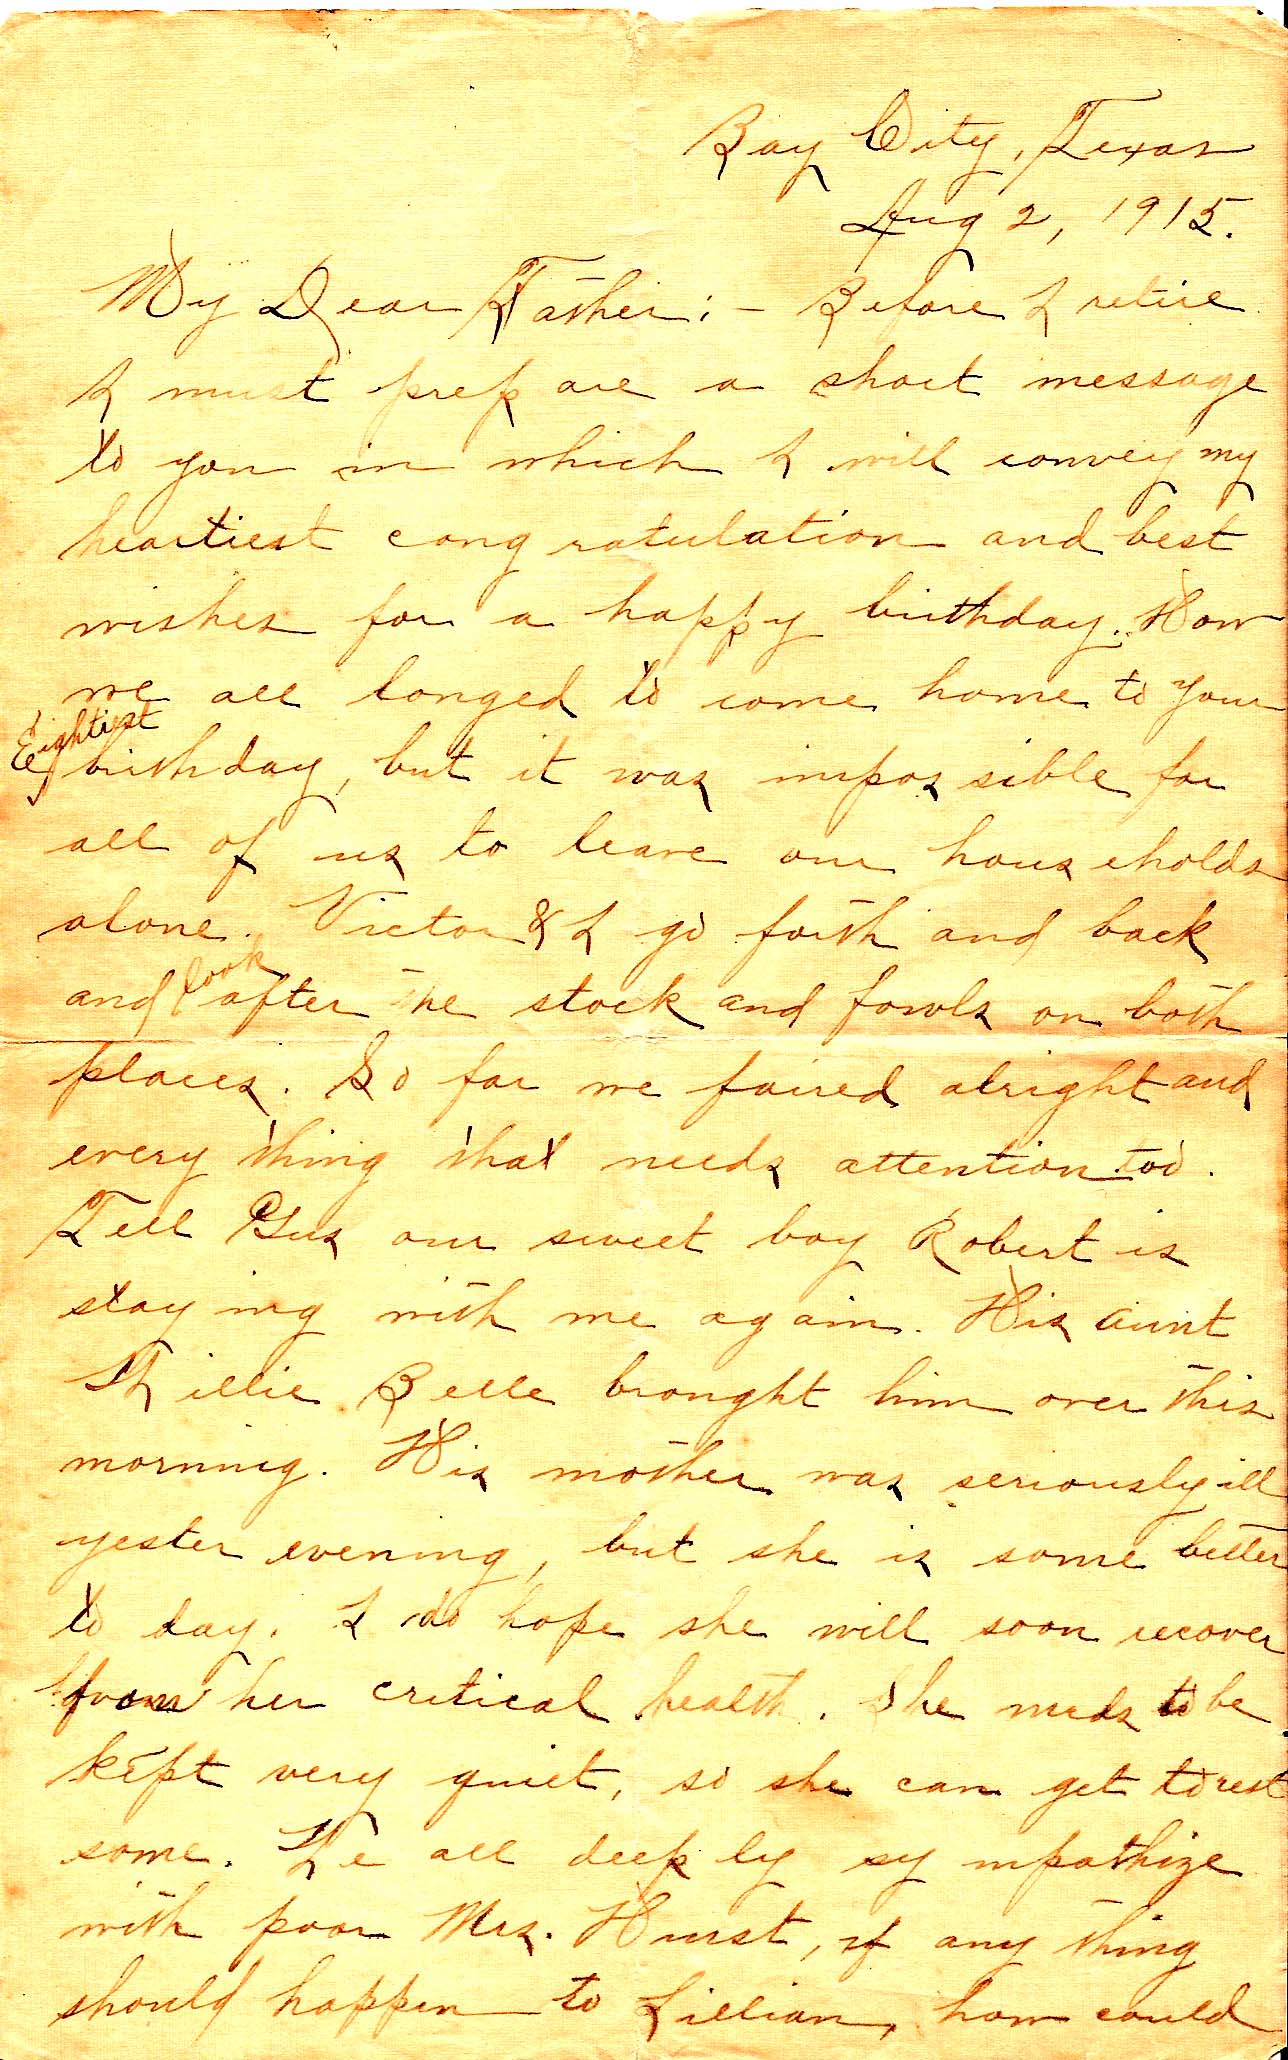 Bay City, Texas
Aug 2, 1915.
My Dear Father; - Before I retire
I must prepare a short message
to you in which I will convey my
heartiest congratulation and best
wishes for a happy birthday. How
we all longed to come home to your
Eightiest
birthday, but it was impossible for
all of us to leave our households
alone. Victor & I go forth and back
and look after the stock and fowls on both
places. So far we faired alright and
every thing that needs attention too.
Tell Gus our sweet boy Robert is
staying with me again. His aunt
Willie Belle brought him over this
morning. His mother was seriously ill
yester evening, but she is some better
to day. I do hope she will soon recover
from her critical health. She needs to be
kept very quiet, so she can get to rest
some. We all deeply sympathize
with poor Mrs. Hurst, if any thing
should happen to Lillian, how could